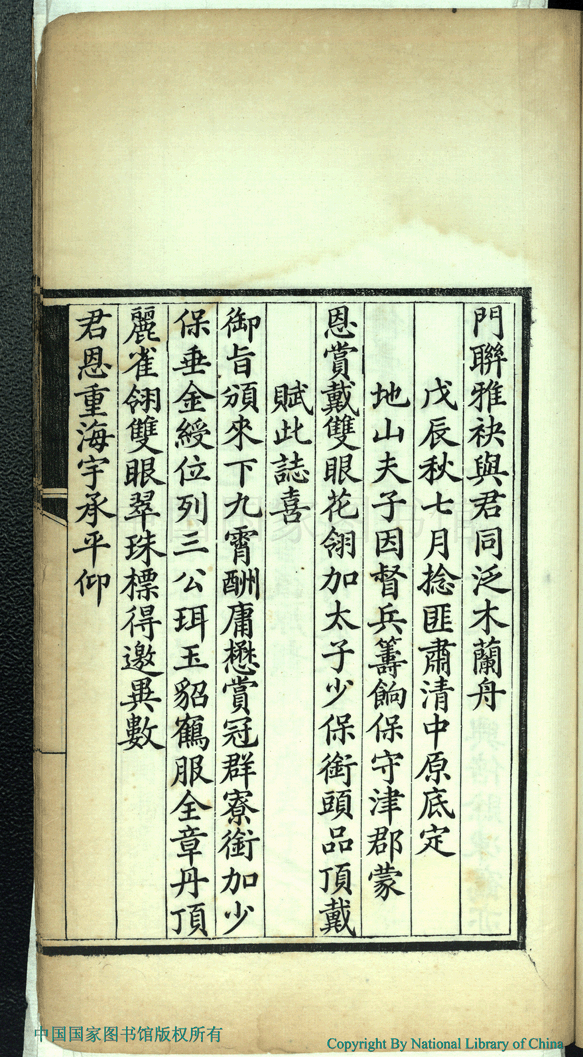 門聯雅袂與君同泛木蘭舟
戊辰秋七月捻匪肅清中原底定
地山夫子因督兵籌餉保守津郡蒙
恩賞戴雙眼花翎加太子少保銜頭品頂戴
賦此誌喜
御旨頒來下九霄酬庸懋賞冠群寮銜加少
保垂金綬位列三公珥玉貂鶴服全章丹頂
麗雀翎雙眼翠珠標得邀異數
君恩重海宇承平仰
中国国家图书馆版权所有
Copyright By National Library of China